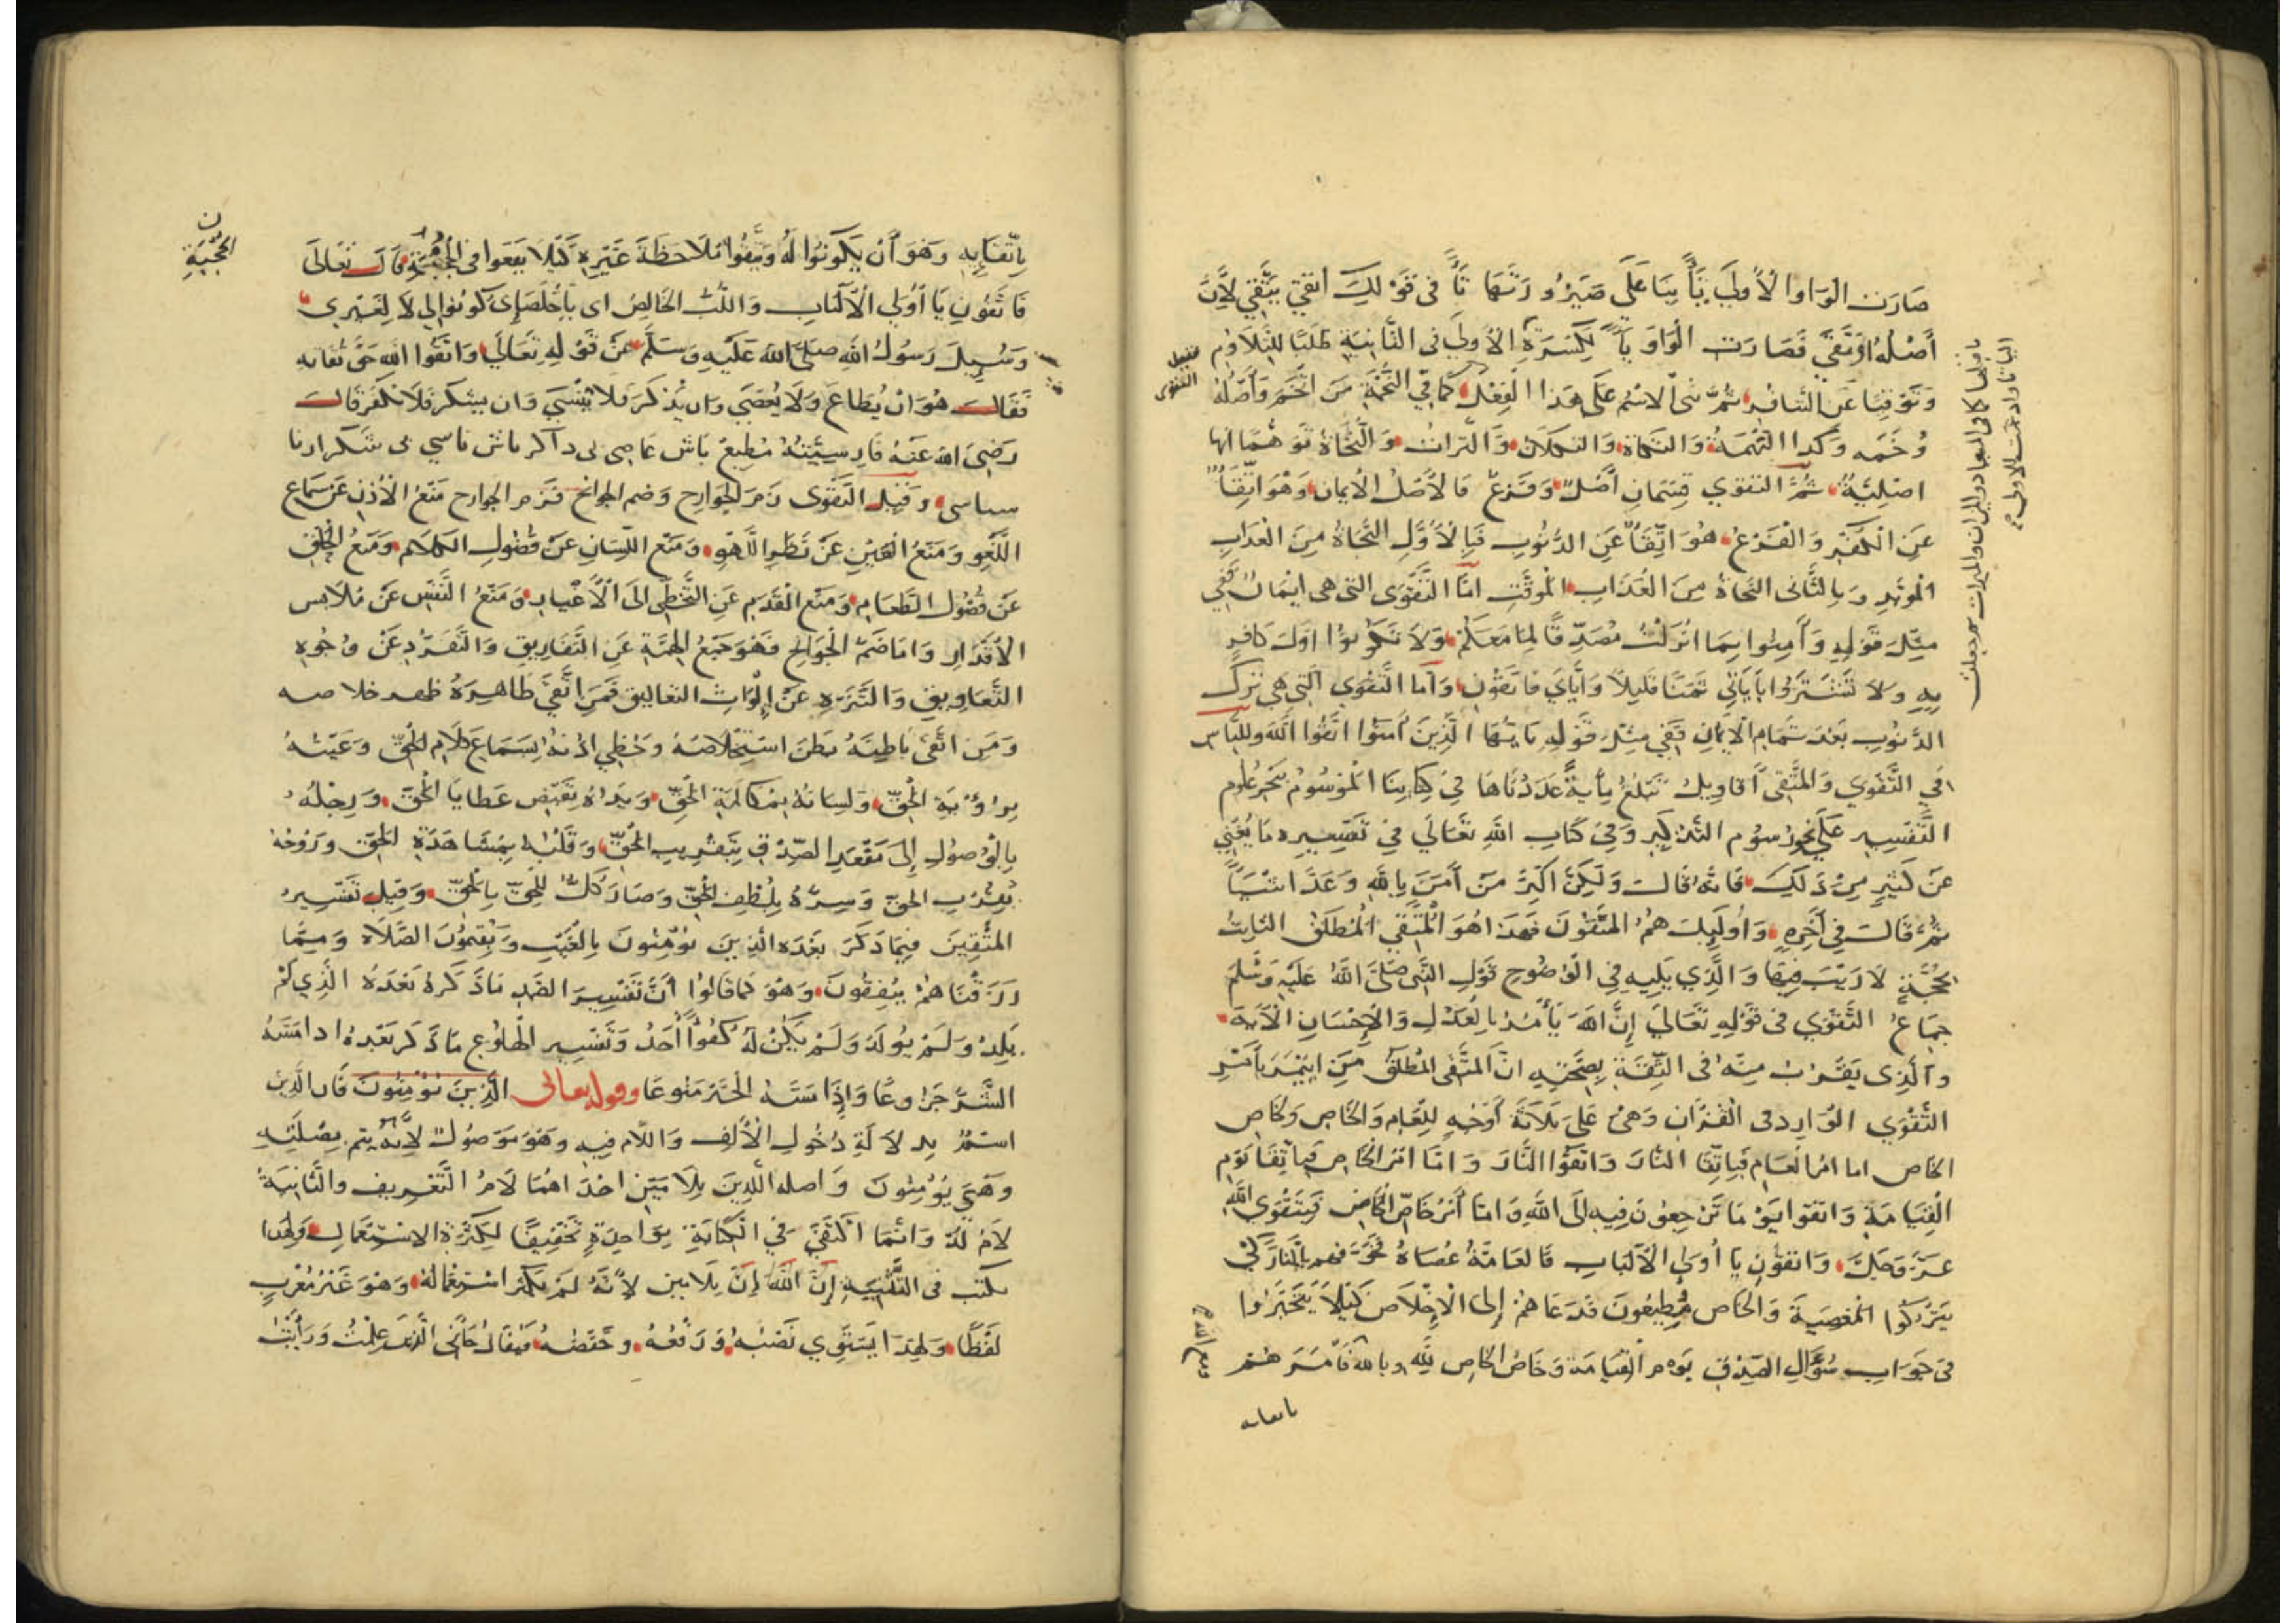 صَارَت الوَاو الْأُولَى يَاءً بِنَاءً عَلَى صَيْرُورَتِهَا تَاءً فى قَوْلِكَ اتقى يَتَّقِي لِأَنَّ
أَصْلُهُ اوْتَقَىَ فَصَارَت الْوَاوُ يَاءً لِكَسْرَةِ الْأُولَى فى الثَّانِيَةِ طَلَبًا لِلتَّلَاؤُمِ
وَتَوَقِّيًا عَنِ التنَافُرِ ثُمَّ بُنى الاسْمُ عَلَى هَذَا الْفِعْلِ كَمَا فِي التُّخَمَةِ مِنَ اتَّخَمَ وَأَصْلُهُ
وُخَمَه وَكَذَا التُّهَمَةُ وَالتكَاة وَالتكلَان وَالتُّرَاثُ وَالتُّجَاةُ تَوَهُّمًا انها
اصْلِيَّةٌ ثُمَّ التقوي قِسْمَانِ أَصْلٌ وَفَرْعٌ فَالْأَصْلُ الْايمَان وَهْوَ اتِّقَاءٌ
عَنِ الْكُفْرِ وَالْفَرْعُ هُوَ اتِّقَاءٌ عَنِ الذُّنُوبِ فَبِالْأَوَّلِ النَّجَاةُ مِنَ الْعَذَابِ
الْمُؤَبَّدِ وَبِالثَّانى النَّجَاةُ مِنَ العَذَابِ الْمُوَقَّتِ امَّا التَّقْوَى التى هى ايْمَانٌ فَفِي
مِثْلِ قَوْلِهِ وَآمِنُوا بِمَا انْزَلْتُ مُصَدِّقًا لِمَا مَعَكُمْ وَلَا تَكُونُوا اوّلَ كَافِرٍ
بِهِ وَلَا تَشْتَرُوا بِآيَاتِي ثَمَنًا قَلِيلًا وَايَّايَ فَاتَّقُونِ وَأَما التَّقْوِى الَّتِى هِى تَرْكُ
الذُّنُوبِ بَعْدَ تَمَامِ الْايمَانِ فَفِي مِثْلِ قَوْلِهِ يَا ايُّهَا الَّذِينَ آمَنُوا اتَّقُوا اللَّهَ وَلِلنَّاسِ
فِي التَّقْوَي وَالْمُتَّقِى أَقَاوِيلُ تَبْلُغُ مِأيةً عَدَدْنَاهَا فِي كِتَابِنَا الْمَوْسُومِ بِبَحْرِ عُلُومِ
التَّفْسِيرِ عَلَى نَحْوِ رُسُوم التَّذْكِيرِ وَفِي كِتَابِ اللَّهِ تَعَالَي فِي تَفْسِيرِهِ مَا يُغْنِي
عَنْ كَثِيرٍ مِنْ ذَلِكَ فَانَّهُ قَالَ وَلَكِنَّ الْبِرَّ مَنْ آمَنَ بِاللَّهِ وَعَدَّ اشْيَاءً
ثُمَّ قَالَ فِي آخِرِهِ وَأُولَئِكَ هُمُ المُتَّقُونَ فَهَذَا هُوَ الْمُتَّقِي الْمُطْلَقُ الثَّابِتُ
بِحُجَّةٍ لَا رَيْبَ فِيهَا وَالَّذِي يَلِيهِ فِي الْوُضُوحِ قَوْلِ النَّبِى صَلَّى اللَّهُ عَلَيْهِ وَسَلَّمَ
جِمَاعُ التَّقْوَي فى قَوْلِهِ تَعَالَي إِنَّ اللَّهَ يَأْمُرُ بِالْعَدْلِ وَالْإِحْسَانِ الْآيَةَ
وَالَّذِى يَقْرُبُ مِنْهُ فى الثِّقَةِ بِصِحَّتِهِ انَّ الْمُتَّقى الْمُطْلَق مَنِ ايتَمَرَ بِأَمْرِ
التَّقْوَي الْوَارِدِ فى الْقُرْآنِ وَهِىَ عَلَى ثَلَاثَةِ أَوْجُهٍ لِلْعَامِ وَالخَاصِ وَلخَاصِ
الخَاص اما امْرُ الْعَامِ فَبِاتِّقَاءِ النَّارَ وَاتَّقُوا النَّارَ وَامَّا امْرُ الخَاصِ فَبِاتِّقَاءِ يَوْمِ
الْقِيَامَةِ وَاتقوا يَوْمًا تُرْجَعُونَ فِيهِ الَى اللَّهِ وَامَّا أَمْرُ خَاصِّ الخَّاصِ فَبِتَقْوَي اللَّهِ
عَزَّ وَجَلَّ وَاتقُوْنِ يَا أُولِي الْأَلْبَابِ فَالْعَامَّةُ عُصَاةٌ خَوَّفَهم بِالنَّارِ لِكَى
يَتْرُكُوا الْمَعْصِيَةَ وَالخَاص مُطِيعُونَ فَدَعَاهُمْ إِلى الْإِخْلَاصِ كَيْلَا يَتَحَيَّرُوا
فى جَوَابِ سُؤَالِ الصِّدْقِ يَوْمَ الْقِيَامَةِ وَخَاصُ الخَاصِ لِلَّهِ وبالله فَأَمَرَهُمْ
باتقايه
بِاتِّقَايِهِ وَهُوَ أَنْ يَكُونُوا لَهُ وَيَتَّقُوا مُلَاحَظَةَ غَيْرِهِ كَيْلَا يَقَعُوا فى الْحُجْبَةِ قَالَ تَعَالَى
فَاتَّقُونِ يَا أُولِي الْأَلْبَابِ وَاللُّبُّ الخَالِصُ اى يَا خُلَصَائى كُونُوا لِى لَا لِغَيْرِي
وَسُئِلَ رَسُولُ اللَّهِ صَلَّى اللَّهُ عَلَيْهِ وَسَلَّمَ عَنْ قَوْلِهِ تَعَالَي وَاتَّقُوا اللَّهَ حَقَّ تُقَاتِهِ
فَقَالَ هُوَ انْ يُطَاعَ وَلَا يُعْصَي وَان يُذْكَرَ فَلَا يُنْسَي وَان يشْكَرَ فَلَا يُكْفَرَ قَالَ
رَضِىَ اللَّه عَنْهُ فَارِسِيَّتُهُ مُطِيعْ بَاش عَاصِى نى ذاكر باش ناسي نى شكرآرنا
سباسى وَقِيلَ التَّقْوَى زَمُّ الْجَوَارِحِ وَضم الجوانح فَزَم الجوارح مَنْعُ الْأُذُنِ عَنْ سَمَاعِ
اللَّغْوِ وَمَنْعُ الْعَيْنِ عَنْ نَظَرِ اللَّهْوِ وَمَنْع اللِّسَانِ عَنْ فُضُولِ الْكَلَامِ وَمَنْعُ الْحَلْقِ
عَنْ فُضُولِ الطَّعَامِ وَمَنْع الْقَدَمِ عَنِ التَّخَطِّى الَى الْأَغْيَارِ وَمَنْعُ النَّفْسِ عَنْ مُلَابس
الْأَقْذَارِ وَامَا ضَمُّ الْجَوَانِحِ فَهُوَ جَمْعُ الهِمَّةِ عَنِ التَّفَارِيقِ وَالتَّفَرُّدِ عَنْ وُجُوهِ
التَّعَاوِيقِ وَالتَّنَزُّهِ عَنْ لَوَاثِ التعاليق فَمَنِ اتَّقَىَ ظَاهِرَهُ ظهر خلاصه
وَمَنِ اتَّقَى بَاطِنَهُ بَطَنَ اسْتِخْلَاصُهُ وَحَظِى اذنهُ بِسَمَاعِ كَلَامِ الْحَقِّ وَعَيْنُهُ
بِرُؤْيَةِ الْحَقِّ وَلِسَانُهُ بِمُكَالَمَةِ الْحَقِّ وَيَدَاهُ بِقَبْضِ عَطَايَا الْحَقِّ وَرِجْلُهُ
بِالْوُصُولِ إِلَى مَقْعَدِ الصِّدْقِ بِتَقْرِيبِ الْحَقِّ وَقَلْبُهُ بِمُشَاهَدَةِ الْحَقِّ وَرُوْحُهُ
بِقُرْبِ الحَقِّ وَسِرُّهُ بِلُطْفِ الْحَقِّ وَصَارَ كُلُّهُ لِلْحَقِّ بِالْحَقِّ وَقِيلَ تَفْسِيرُ
المتَّقِينَ فِيمَا ذَكَرَ بَعْدَهُ الَّذِينَ يُؤْمِنُونَ بِالْغَيْبِ وَيُقِيمُوْنَ الصَّلَاةَ وَمِمَّا
رَزَقْنَاهُمْ يُنْفِقُونَ وَهُوَ كَمَا قَالُوا أَنَّ تَفْسِيرَ الصَّمَدِ مَا ذَكَرَهُ بَعْدَهُ الَّذِي لَمْ
يَلِدْ وَلَمْ يُولَدْ وَلَمْ يَكُنْ لَهُ كُفُوًا أَحَدٌ وَتَفْسِير الْهَلُوْعِ مَا ذَكَر بَعْدهُ اذا مَسَّهُ
الشَّرُّ جَزُوعًا وَإِذَا مَسَّهُ الْخَيْرُ مَنُوعًا وقوله تعالى الَّذِينَ يُؤْمِنُونَ فَالَّذِينَ
اسْمٌ بِدلَالَةِ دُخُولِ الْأَلِفِ وَاللَّامِ فِيهِ وَهُوَ مَوْصُولٌ لِأَنَّهُ يتم بِصِلَتِهِ
وَهَىَ يُؤْمِنُونَ وَاصله اللَّذِينَ بِلَامَيْنِ احْدَاهُمَا لَامُ التَّعْرِيفِ والثَّانِيَةُ
لَامُ لَذَّ وَانَّمَا اكْتُفِىَ فِي الْكِتَابَةِ بِوَاحِدَةٍ تَخْفِيفًا لِكَثْرَةِ الاسْتِعْمَالِ وَلِهَذا
يكتب فى التَّثْنِيَةِ إِنَّ اللَّذَيْنِ بِلَامين لِأَنَّهُ لَمْ يَكْثُر اسْتِعْمَالُهُ وَهُوَ غَيْرُ مُعْرَبٍ
لَفْظًا وَلِهَذَا يَسْتَوِي نَصْبُهُ وَرَفْعُهُ وخَفْضُهُ فيُقَالُ جَاءَنِى الَّذِينَ عَلِمْتُ وَرَأَيْتُ